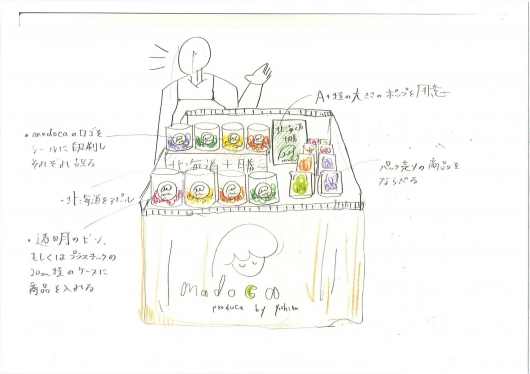 A4程の大きさのポップを用意
・madocaのロゴを
シールに印刷し
それぞれ貼る
北海道
十勝
パック売りの商品を
ならべる
北海道十勝
・北海道をアピール
・透明のビン、
もしくはプラスチックの
20cm程のケースに
商品を入れる
madoca
produce by